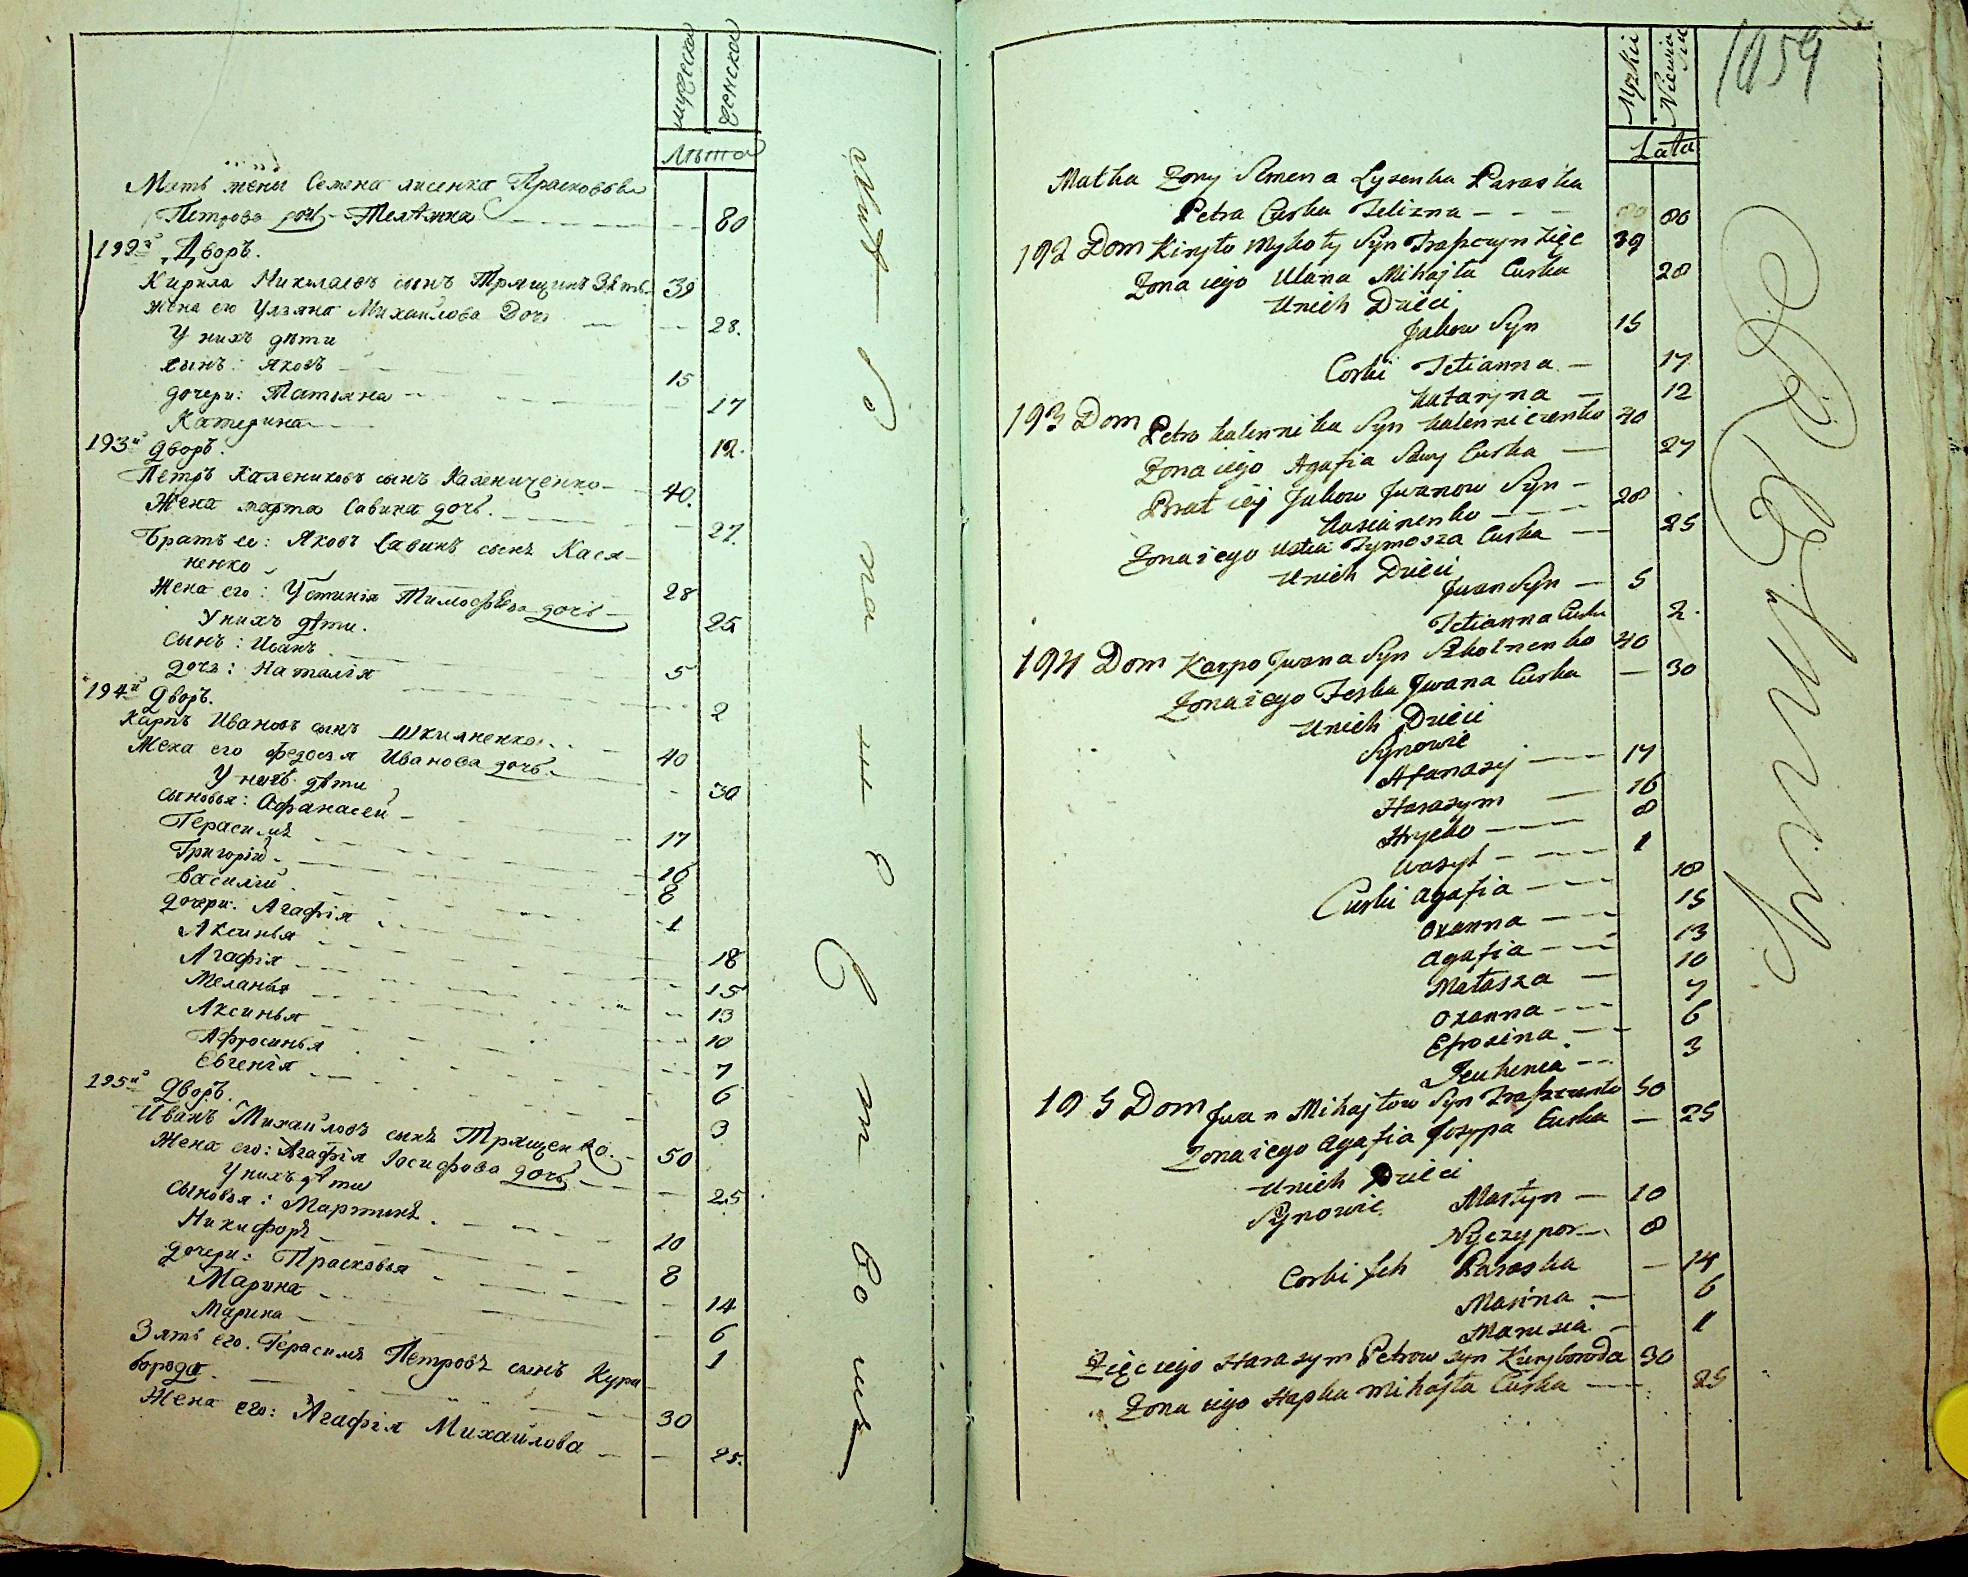 мужеска
женска
лѣта
Мать жены Семена лисенка Прасковья
Петрова дочь Телѣжна 80
192й Дворъ.
Кирила Николаевъ сынъ Трящинъ Зять 39
жена его Ульяна Михайлова Дочь 28.
У нихъ дѣти
сынъ: Яковъ 15
дочери: Татьяна 17
Катерина 12.
193й дворъ.
Петръ Калениковъ сынъ Калениченко 40.
Жена марта Савина дочь. 27.
Братъ ее: Яковъ Савинъ сынъ Кася-
ненко 28
Жена его: Устинія Тимофѣева дочь 25
У нихъ дѣти.
Сынъ: Иванъ 5
дочь: Наталія 2
194й дворъ.
Карпъ Ивановъ сынъ Шкилненко 40
Жена его Федосья Иванова дочь. 30
У нихъ дѣти
сыновья: Афанасей 17
Герасимъ 16
Григорій 8
Василій 1
дочери: Агафія 18
Аксинья 15
Агафія 13
Меланья 10
Аксинья 7
Афросинья 6
Евгенія 3
195й дворъ.
Иванъ Михайловъ сынъ Трященко. 50
Жена его: Агафія Іосифова дочь 25
У нихъ дѣти
сыновья: Мартинъ 10
Никифоръ 8
дочери: Прасковья 14
Марина 6
Марина 1
Зять его. Герасимъ Петровъ сынъ Кури
борода. 30
Жена его: Агафія Михайлова 25.
1059
Męzki
Niewia
Lata
Matka Zony Semena Lysenka Paraska
Petra Curka Telizna 80
192 Dom Kiryło Mykoły Syn Traszczyn Zięc 39
Zona iego Ulana Mihajła Curka 28
Unich Dzieci
Jakow Syn 15
Corki Tetianna 17
Kataryna 12
193 Dom Petro Kalennika Syn Kalenniczenko 40
Zona iego Agafia Sawy Curka 27
Brat iey Jakow Jwanow Syn 28
Kasianenko
Zona iego Ustia Tymosza Curka 25
Unich Dzieci
Jwan Syn 5
Tetianna Curka 2.
194 Dom Karpo Jwana Syn Szkolnenko 40
Zona iego Feska Jwana Curka 30
Unich Dzieci
Synowie
Afanasy 17
Harasym 16
Hrycko 8
Wasyl 1
Curki Agafia 18
Oxanna 15
Agafia 13
Małasza 10
Oxanna 7
Efrosina 6
Jeuhenia 3
195 Dom Jwan Mihajłow Syn Traszczenko 50
Zona iego Agafia Jozypa Curka 25
Unich Dzieci
Synowie Martyn 10
Nyczypor 8
Corki Ich Paraska 14
Marina 6
Marusia 1
Zięc iego Harasym Petrow syn Kuryboroda 30
Zona iego Hapka Mihajła Curka 25